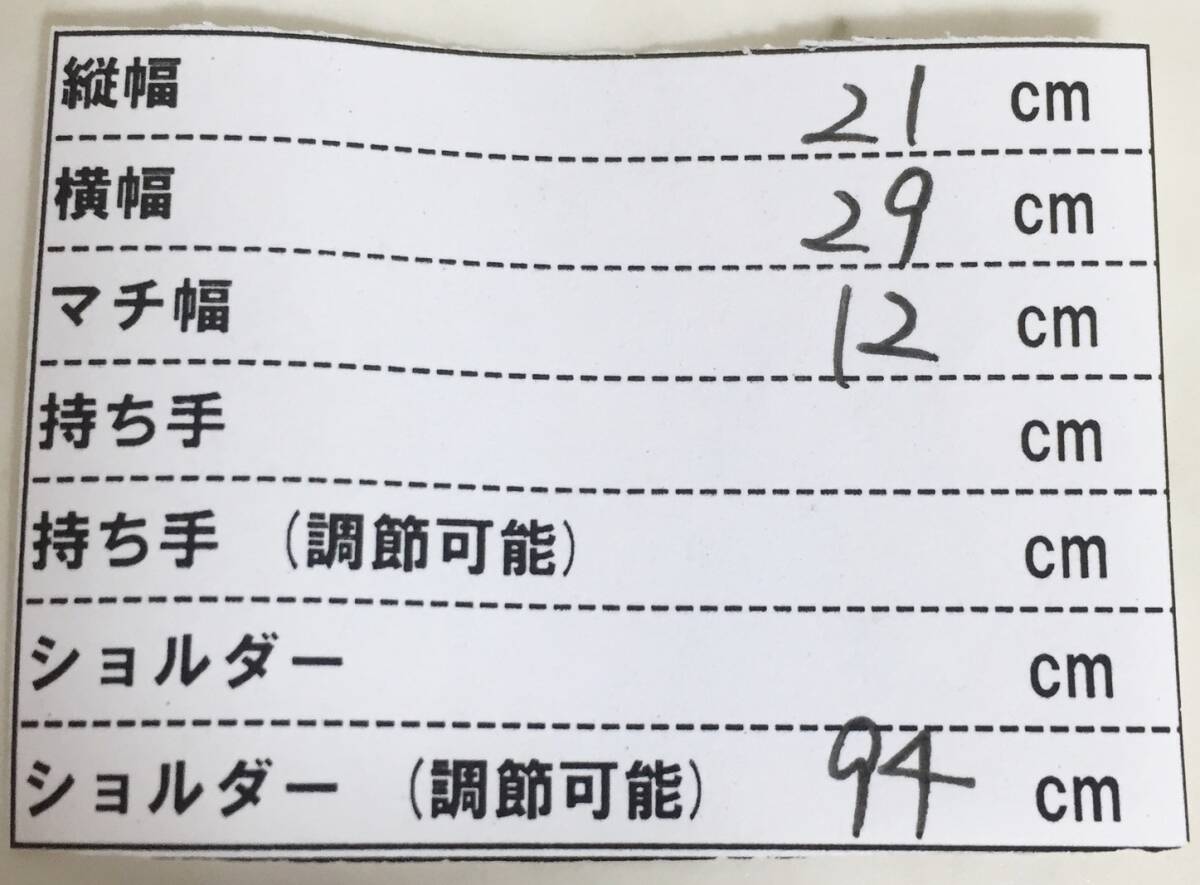 縦幅 21 cm
横幅 29 cm
マチ幅 12 cm
持ち手 cm
持ち手 (調節可能) cm
ショルダー cm
ショルダー (調節可能) 94 cm